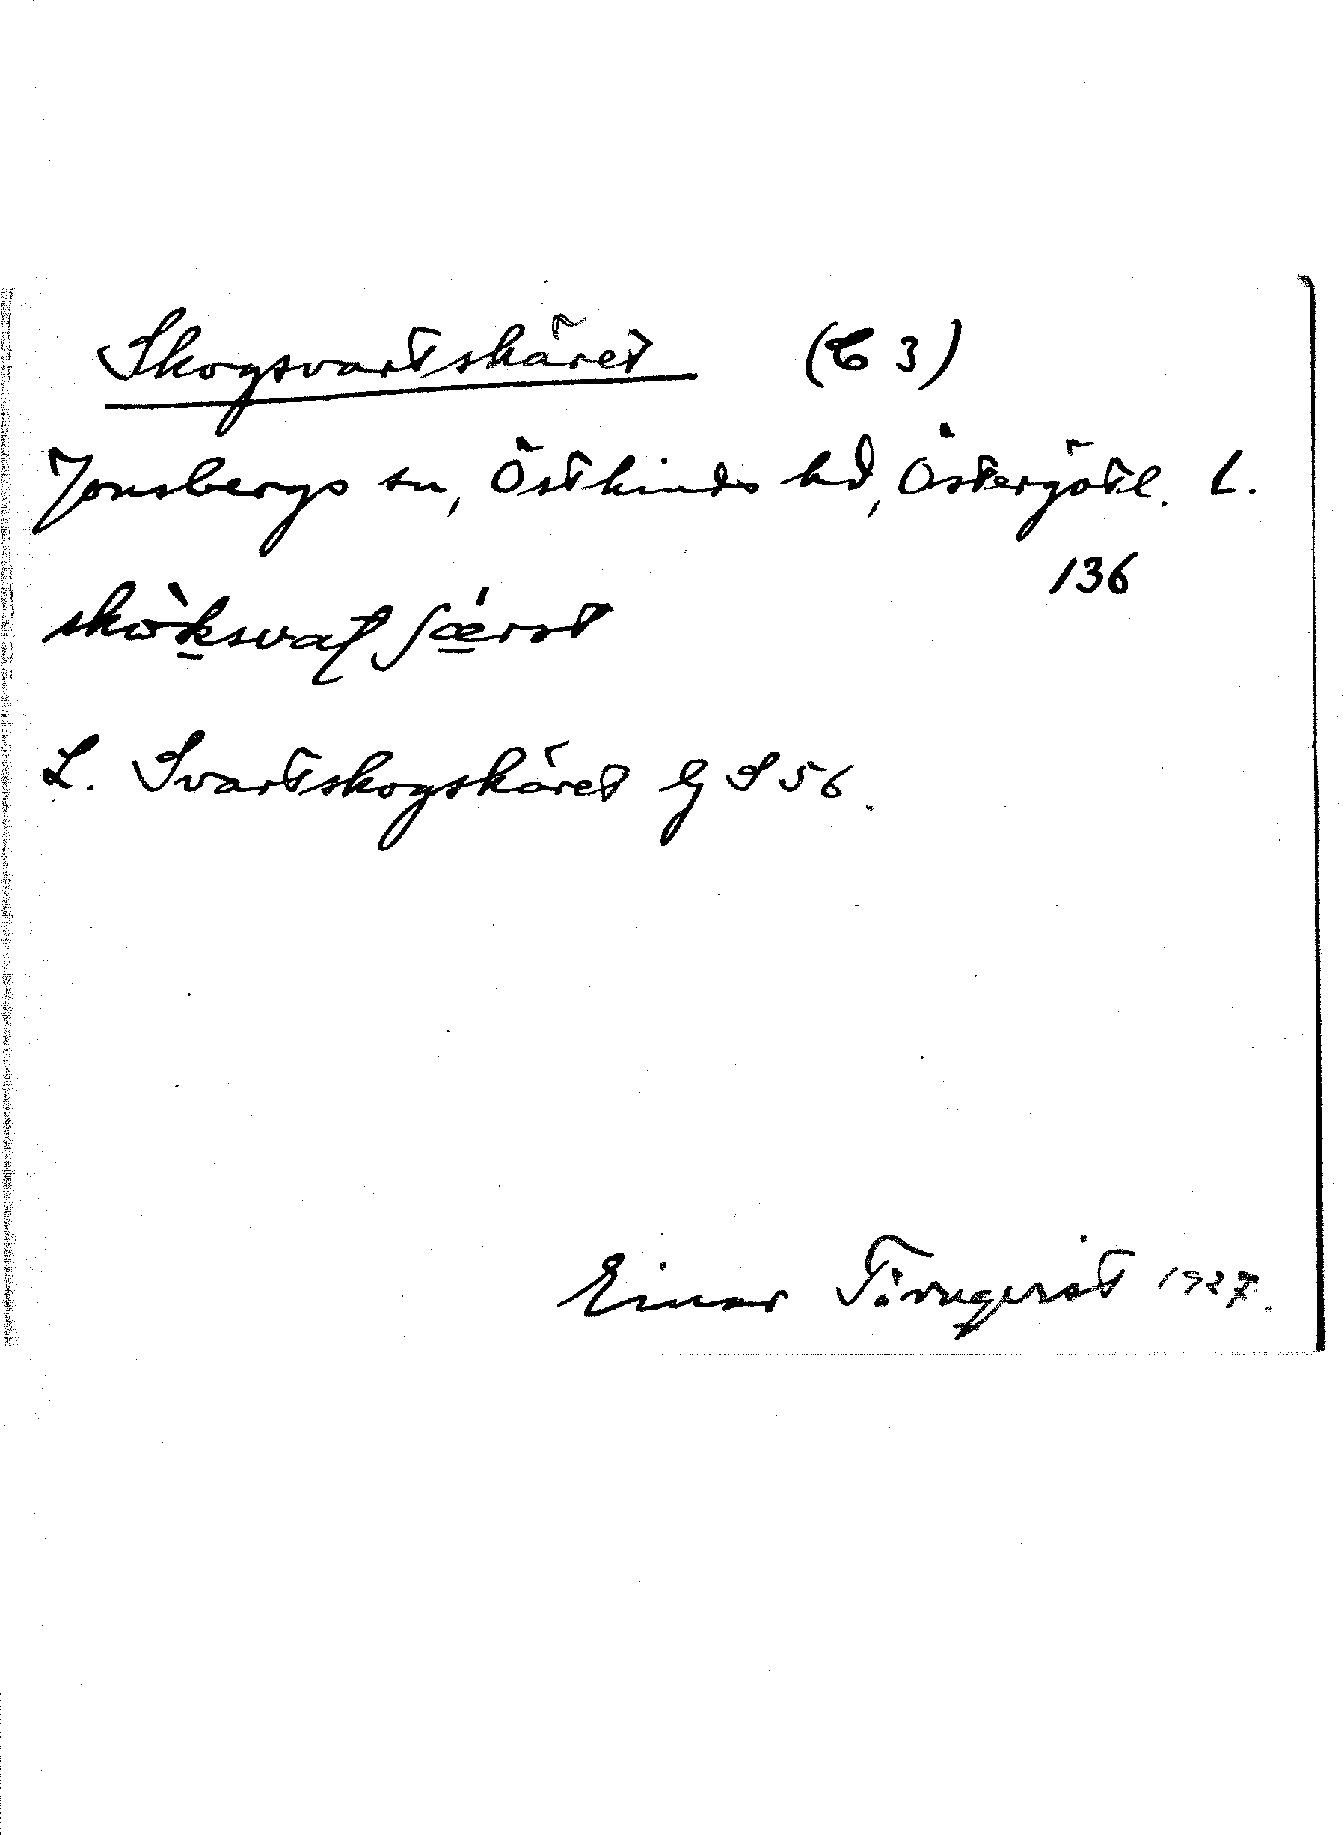 Skogsvartskäret (C 3)
Jonsbergs sn, Östkinds hd, Östergötl. l.
136
L. Svartskogskäret G S 56.
Einar Törnqvist 1927.